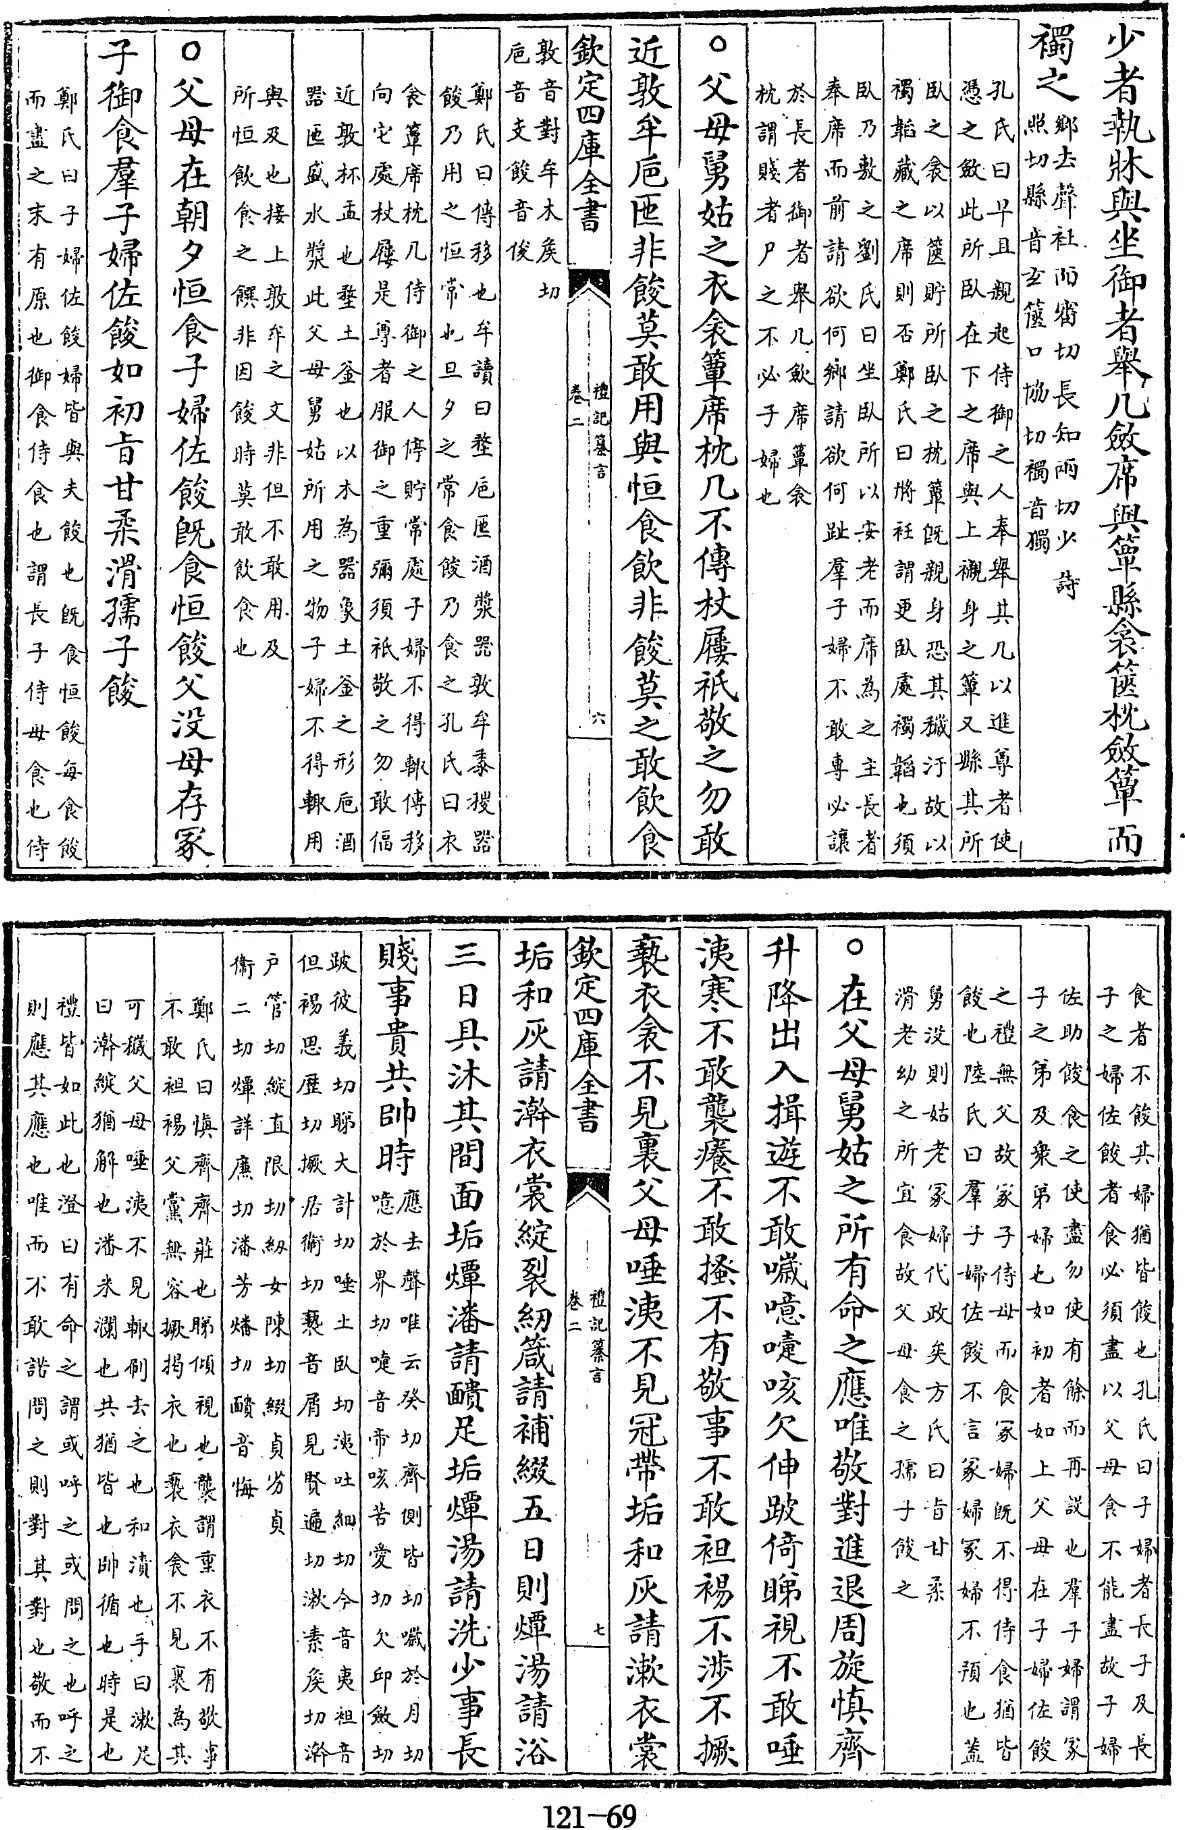 少者執牀與坐御者舉几斂席與簟縣衾篋枕斂簟而
襡之
鄉去聲社而審切長知兩切少詩
照切縣音玄篋口協切襡音獨
孔氏曰早旦親起侍御之人奉舉其几以進尊者使
憑之斂此所臥在下之席與上襯身之簟又縣其所
臥之衾以篋貯所臥之枕簟旣親身恐其穢汙故以
襡韜藏之席則否鄭氏曰將衽謂更臥處襡韜也須
臥乃敷之劉氏曰坐臥所以安老而席為之主長者
奉席而前請欲何鄉請欲何趾羣子婦不敢專必讓
於長者御者舉几斂席簟衾
枕謂賤者尸之不必子婦也
○父母舅姑之衣衾簟席枕几不傳杖屨祇敬之勿敢
近敦牟巵匜非餕莫敢用與恒食飲非餕莫之敢飲食
欽定四庫全書
禮記纂言
卷二
六
敦音對牟木矦切
巵音支餕音俊
鄭氏曰傳移也牟讀曰堥巵匜酒漿器敦牟黍稷器
餕乃用之恒常也旦夕之常食餕乃食之孔氏曰衣
衾簟席枕几侍御之人停貯常處子婦不得輒傳移
向它處杖屨是尊者服御之重彌須祇敬之勿敢偪
近敦杯盂也堥土釜也以木為器象土釜之形巵酒
器匜盛水漿此父母舅姑所用之物子婦不得輒用
與及也接上敦牟之文非但不敢用及
所恒飲食之饌非因餕時莫敢飲食也
○父母在朝夕恒食子婦佐餕旣食恒餕父没母存冡
子御食羣子婦佐餕如初旨甘柔滑孺子餕
鄭氏曰子婦佐餕婦皆與夫餕也旣食恒餕每食餕
而盡之末有原也御食侍食也謂長子侍母食也侍
食者不餕其婦猶皆餕也孔氏曰子婦者長子及長
子之婦佐餕者食必須盡以父母食不能盡故子婦
佐助餕食之使盡勿使有餘而再設也羣子婦謂冡
子之弟及衆弟婦也如初者如上父母在子婦佐餕
之禮無父故冡子侍母而食冡婦旣不得侍食猶皆
餕也陸氏曰羣子婦佐餕不言冡婦冡婦不預也葢
舅没則姑老冡婦代政矣方氏曰旨甘柔
滑老幼之所宜食故父母食之孺子餕之
○在父母舅姑之所有命之應唯敬對進退周旋慎齊
升降出入揖遊不敢噦噫嚏咳欠伸跛倚睇視不敢唾
洟寒不敢襲癢不敢搔不有敬事不敢袒裼不涉不撅
褻衣衾不見裏父母唾洟不見冠帶垢和灰請漱衣裳
欽定四庫全書
禮記纂言
卷二
七
垢和灰請澣衣裳綻裂紉箴請補綴五日則燂湯請浴
三日具沐其間面垢燂潘請靧足垢燂湯請洗少事長
賤事貴共帥時
應去聲唯云癸切齊側皆切噦於月切
噫於界切嚏音帝咳苦愛切欠邱斂切
跛彼義切睇大計切唾土臥切洟吐細切今音夷袒音
但裼思歷切撅居衛切褻音屑見賢遍切漱素矦切澣
户管切綻直限切紉女陳切綴貞劣貞
衞二切燂詳廉切潘芳燔切靧音悔
鄭氏曰慎齊齊莊也睇傾視也襲謂重衣不有敬事
不敢袒裼父黨無容撅揭衣也褻衣衾不見裏為其
可穢父母唾洟不見輒刷去之也和漬也手曰漱足
曰澣綻猶解也潘米瀾也共猶皆也帥循也時是也
禮皆如此也澄曰有命之謂或呼之或問之也呼之
則應其應也唯而不敢諾問之則對其對也敬而不
121-69